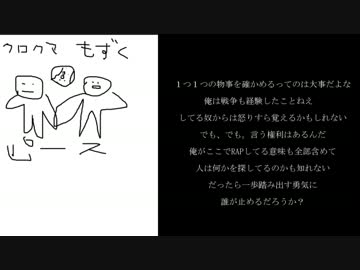 クロクマ もずく
ピース
1つ1つの物事を確かめるってのは大事だよな
俺は戦争も経験したことねえ
してる奴からは怒りすら覚えるかもしれない
でも、でも,言う権利はあるんだ
俺がここでRAPしてる意味も全部含めて
人は何かを探してるのかも知れない
だったら一歩踏み出す勇気に
誰が止めるだろうか?